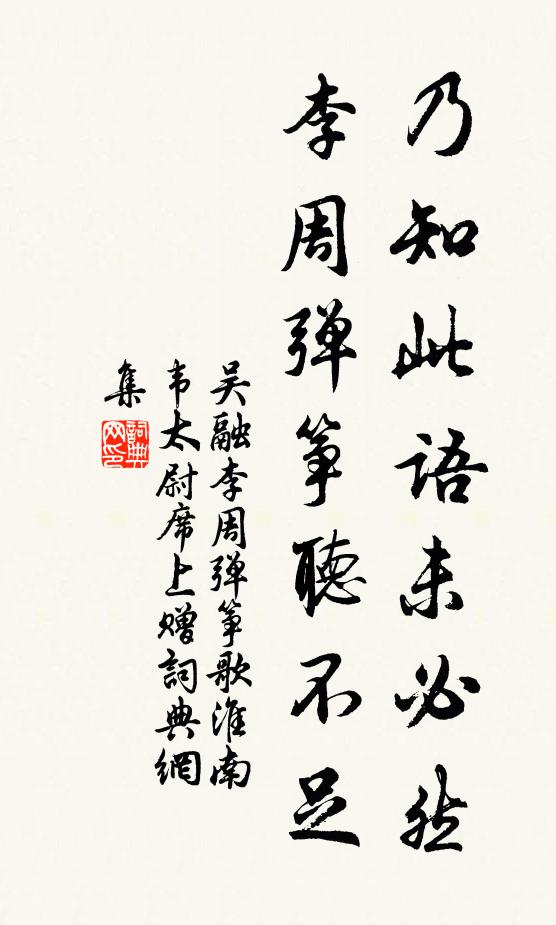 乃知此語未必然
李周弹筝聽不足
吴融李周弹筝歌淮南
韦太尉席上赠詞典網
集
詞典
网印